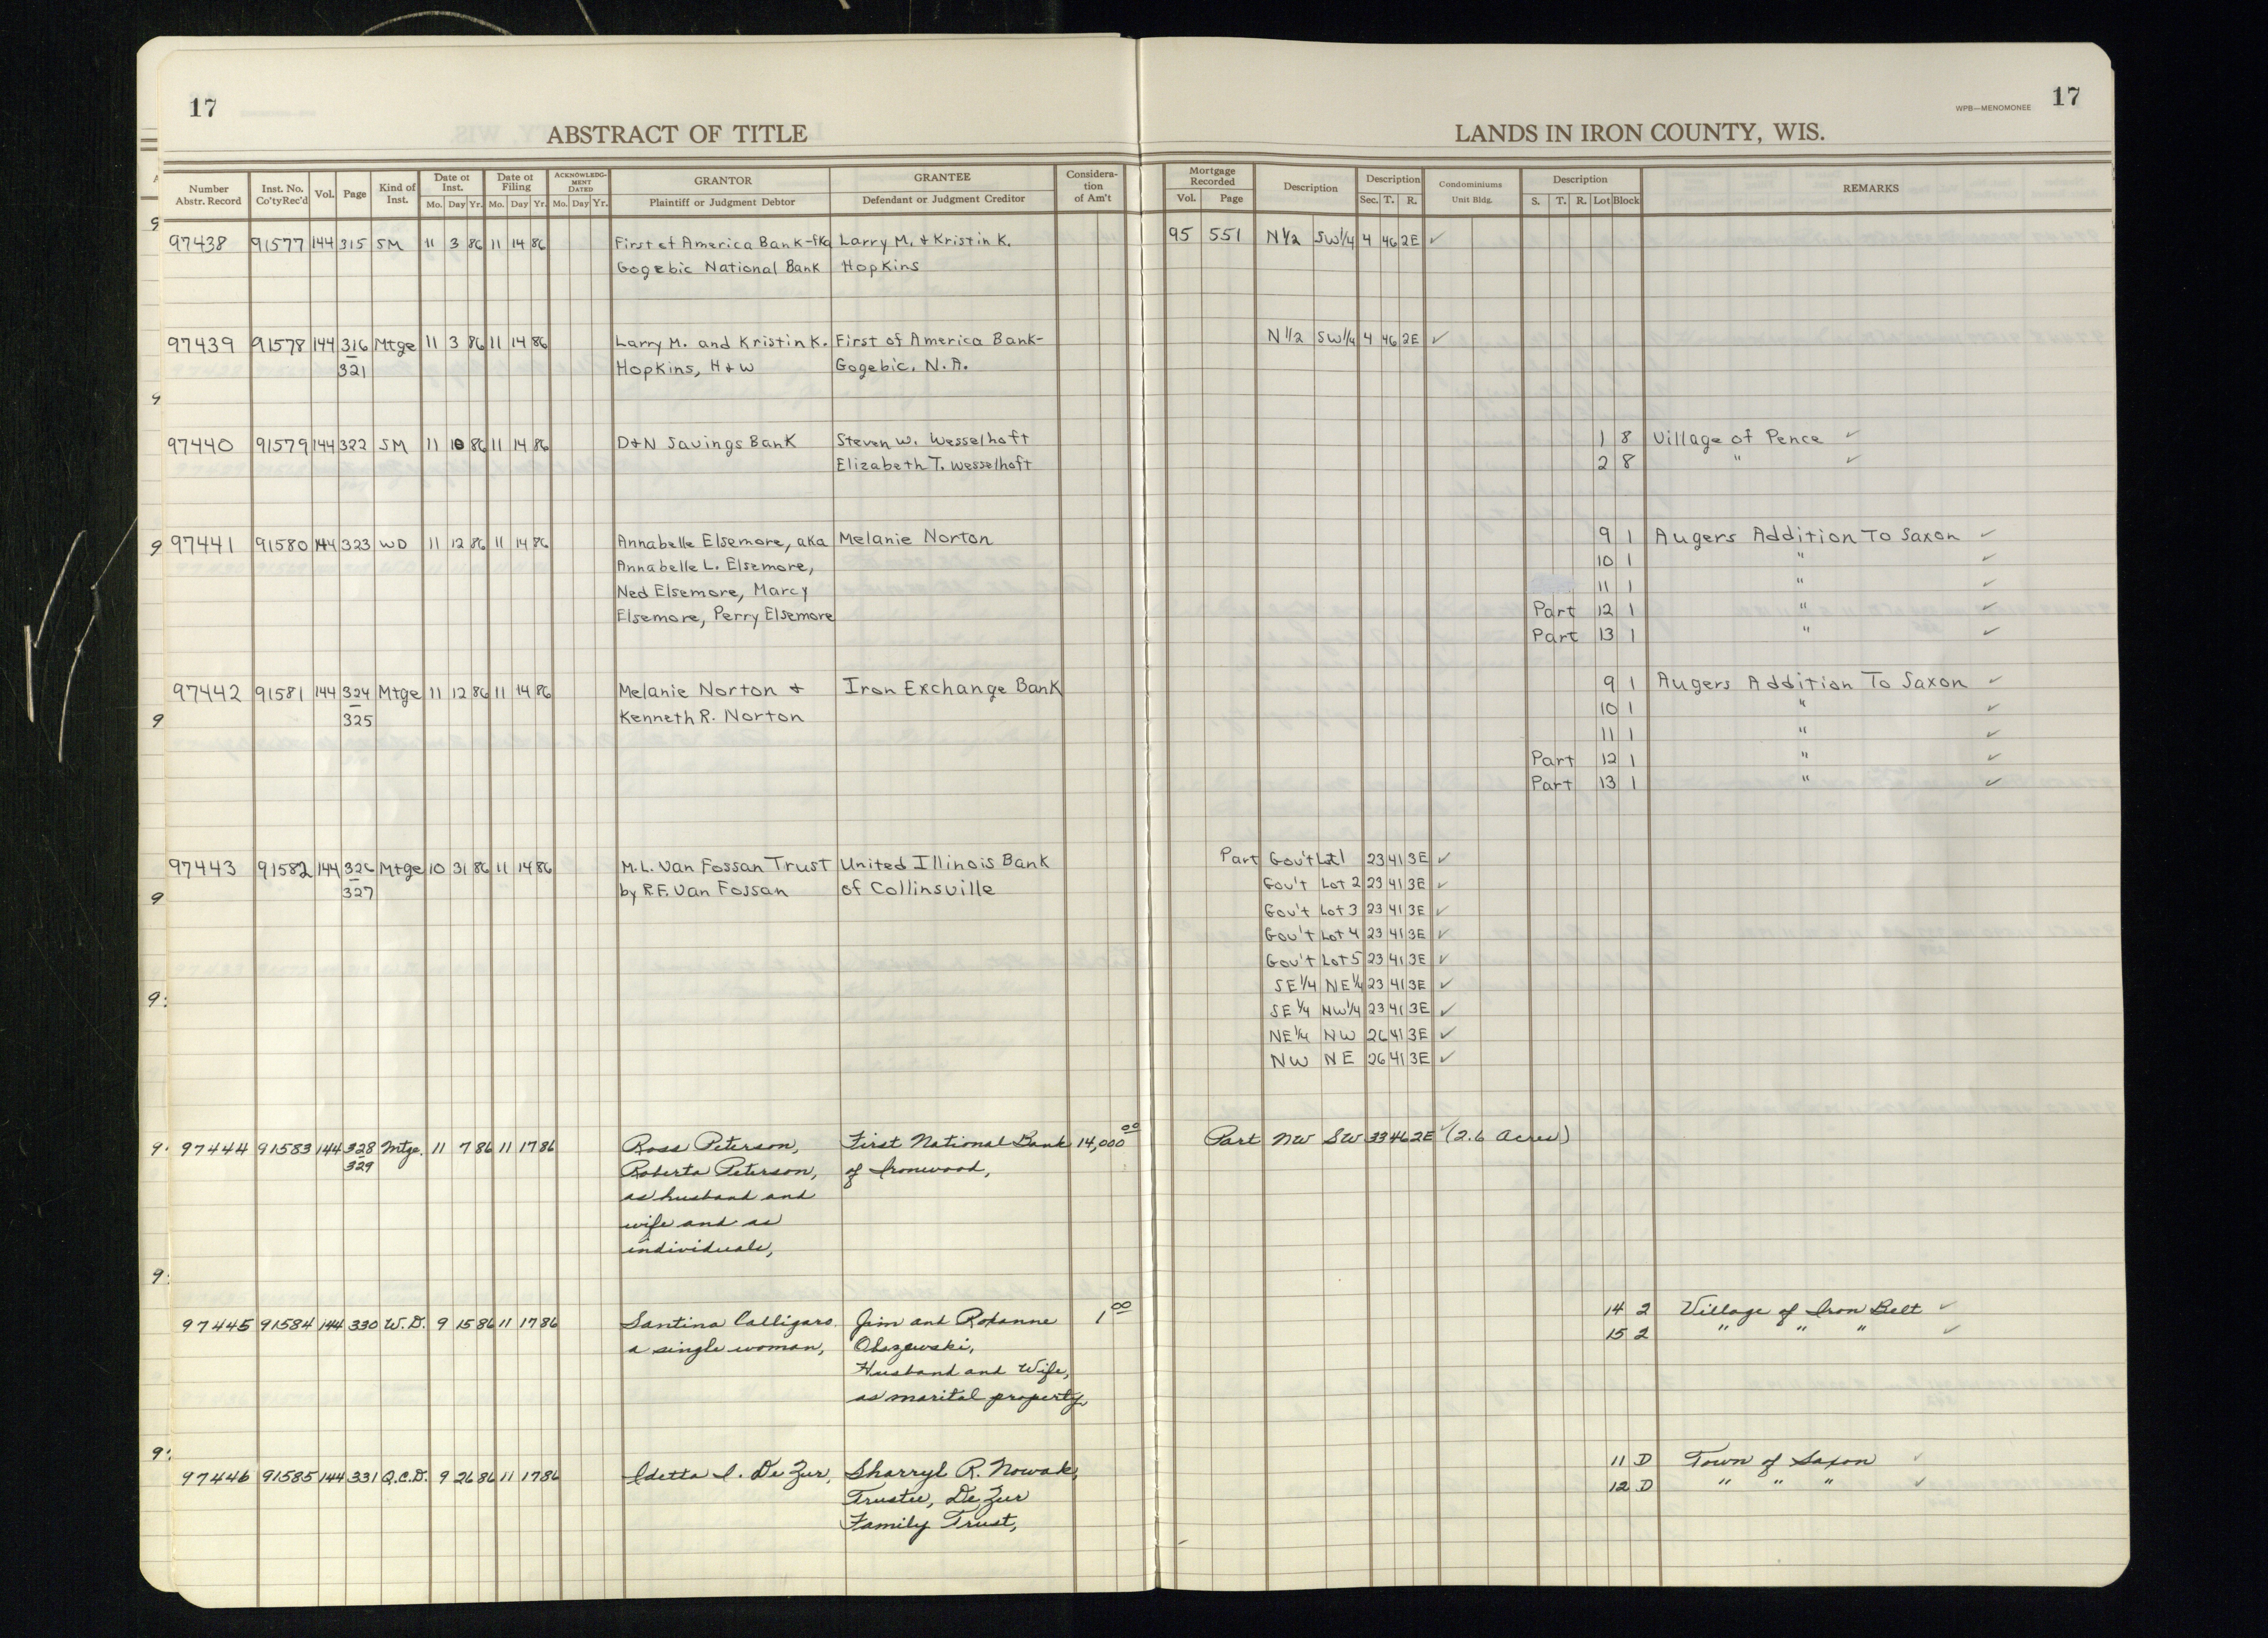 17
ABSTRACT OF TITLE
LANDS IN IRON COUNTY, WIS.
WPB—MENOMONEE 17
Number Abstr. Record Inst. No. Co'ty Rec'd Vol. Page Kind of Inst. Date of Inst. Mo. Day Yr. Date of Filing Mo. Day Yr. ACKNOWLEDGMENT DATED Mo. Day Yr. GRANTOR Plaintiff or Judgment Debtor GRANTEE Defendant or Judgment Creditor Consideration of Am't Mortgage Recorded Vol. Page Description Description Sec. T. R. Condominiums Unit Bldg. Description S. T. R. Lot Block REMARKS
97438 91577 144 315 SM 11 3 86 11 14 86 First of America Bank-fka Larry M. + Kristin K. 95 551 N 1/2 SW 1/4 4 46 2E ✓
Gogebic National Bank Hopkins
97439 91578 144 316 Mtge 11 3 86 11 14 86 Larry M. and Kristin K. First of America Bank- N 1/2 SW 1/4 4 46 2E ✓
321 Hopkins, H + W Gogebic, N.A.
97440 91579 144 322 SM 11 10 86 11 14 86 D+N Savings Bank Steven W. Wesselhoft 1 8 Village of Pence ✓
Elizabeth T. Wesselhoft 2 8 " ✓
97441 91580 144 323 WD 11 12 86 11 14 86 Annabelle Elsemore, aka Melanie Norton 9 1 Augers Addition To Saxon ✓
Annabelle L. Elsemore, 10 1 " ✓
Ned Elsemore, Marcy 11 1 " ✓
Elsemore, Perry Elsemore Part 12 1 " ✓
Part 13 1 " ✓
97442 91581 144 324 Mtge 11 12 86 11 14 86 Melanie Norton + Iron Exchange Bank 9 1 Augers Addition To Saxon ✓
325 Kenneth R. Norton 10 1 " ✓
11 1 " ✓
Part 12 1 " ✓
Part 13 1 " ✓
97443 91582 144 326 Mtge 10 31 86 11 14 86 M.L. Van Fossan Trust United Illinois Bank Part Gov't Lot 1 23 41 3E ✓
327 by R.F. Van Fossan of Collinsville Gov't Lot 2 23 41 3E ✓
Gov't Lot 3 23 41 3E ✓
Gov't Lot 4 23 41 3E ✓
Gov't Lot 5 23 41 3E ✓
SE 1/4 NE 1/4 23 41 3E ✓
SE 1/4 NW 1/4 23 41 3E ✓
NE 1/4 NW 26 41 3E ✓
NW NE 26 41 3E ✓
97444 91583 144 328 Mtge. 11 7 86 11 17 86 Ross Peterson, First National Bank 14,000 00 Part NW SW 33 46 2E ✓ (2.6 Acres)
329 Roberta Peterson, of Ironwood,
as husband and
wife and as
individuals,
97445 91584 144 330 W.D. 9 15 86 11 17 86 Santina Calligaro Jim and Roxanne 1 00 14 2 Village of Iron Belt ✓
a single woman, 15 2 " " " ✓
Husband and Wife,
as marital property,
97446 91585 144 331 Q.C.D. 9 26 86 11 17 86 Idetta I. De Zur, Sharryl R. Nowak, 11 D Town of Saxon ✓
Trustee, De Zur 12 D " " " ✓
Family Trust,